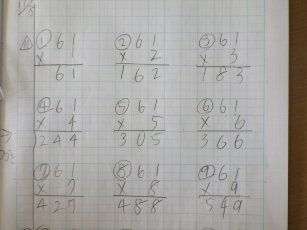 ① 61 ② 61 ③ 61
× 1 × 2 × 3
61 162 183
④ 61 ⑤ 61 ⑥ 61
× 4 × 5 × 6
244 305 366
⑦ 61 ⑧ 61 ⑨ 61
× 7 × 8 × 9
427 488 549